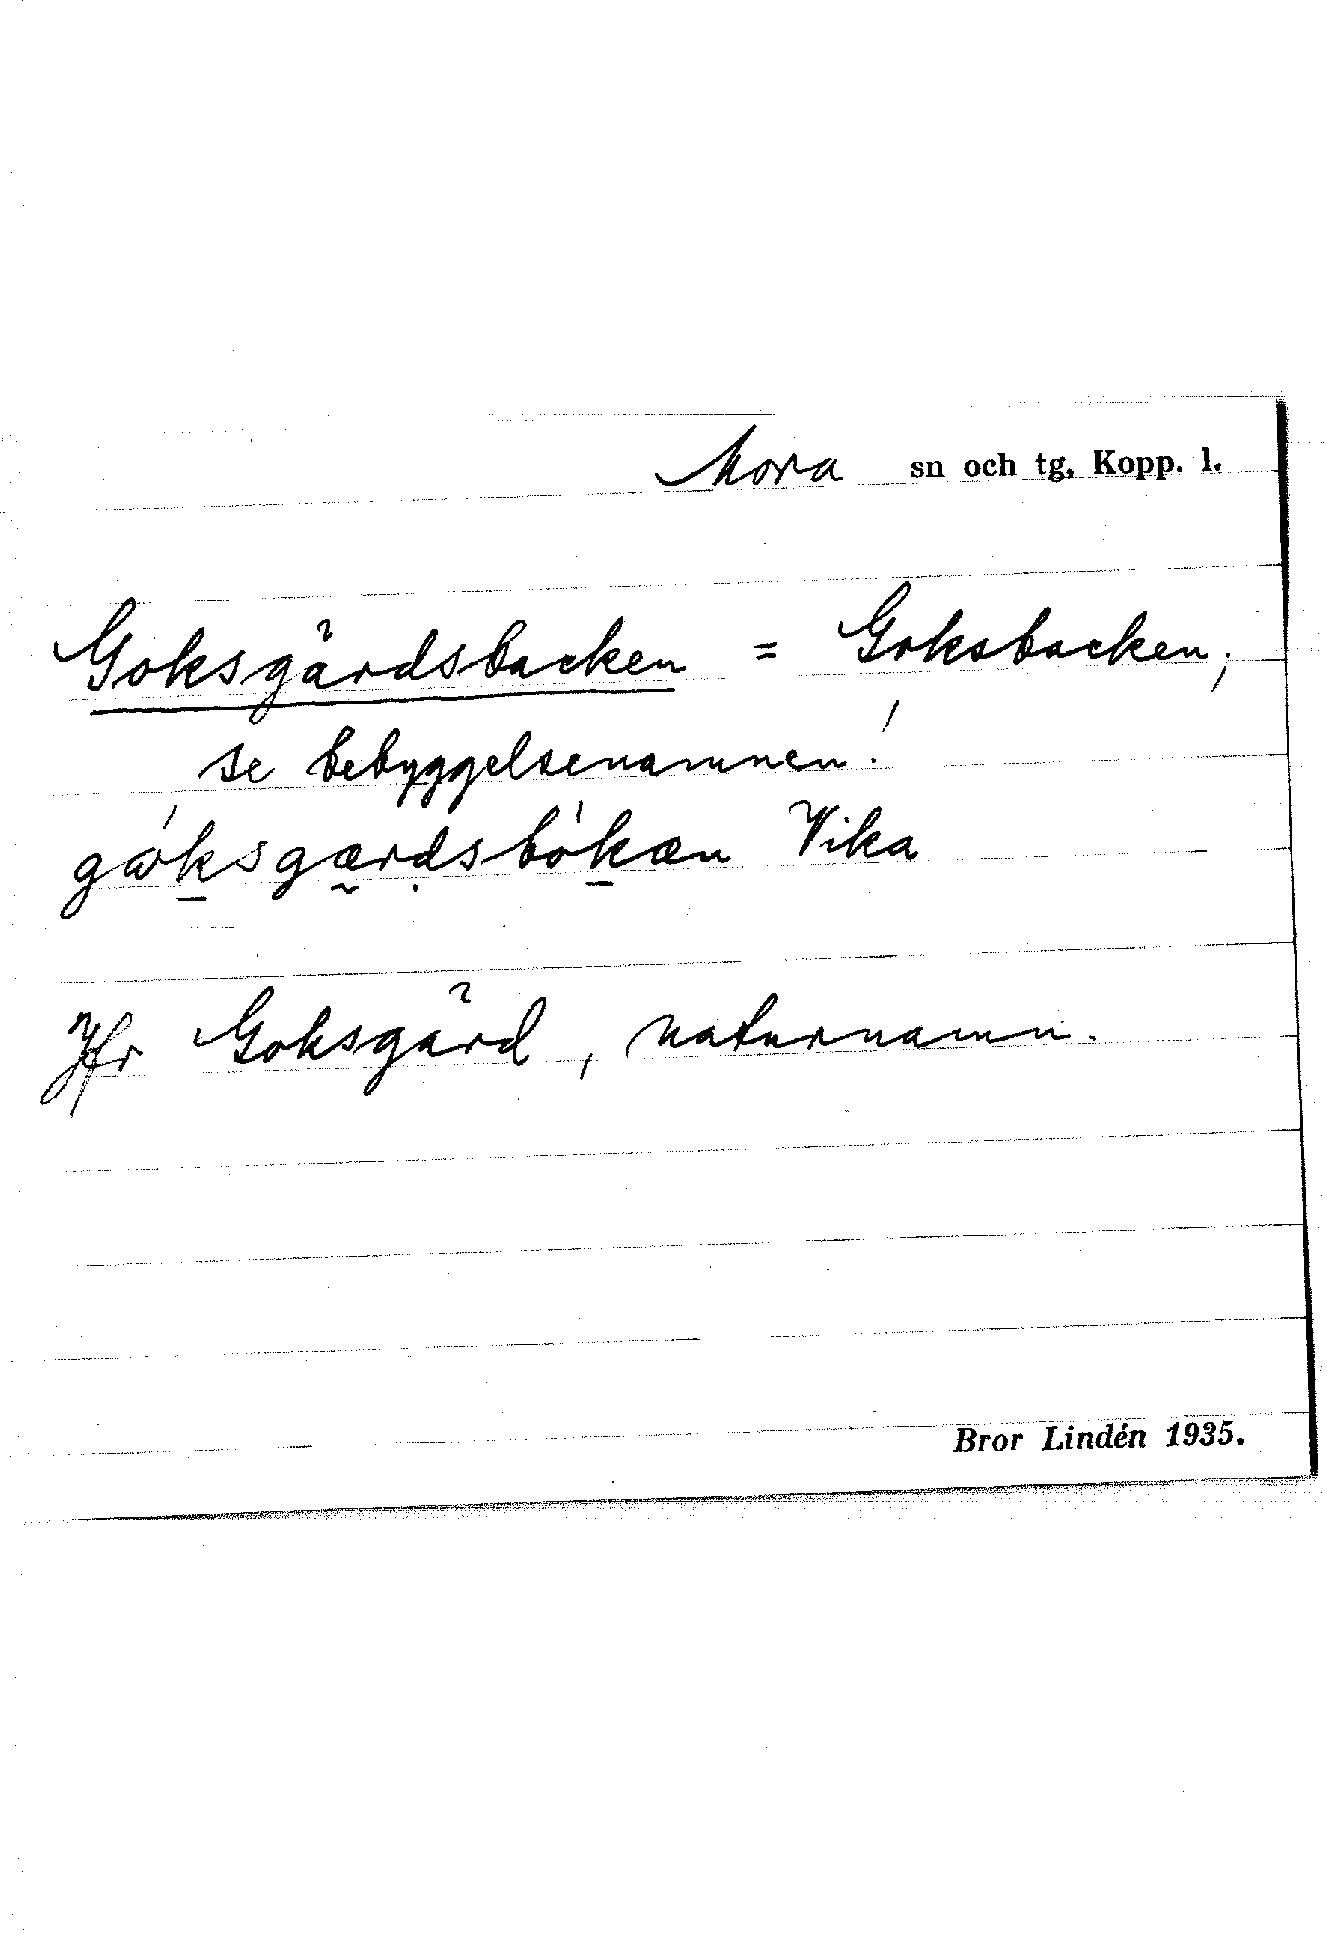 Mora sn och tg, Kopp. l.
Goksgårdsbacken = Goksbacken;
se bebyggelsenamnen!
Vika
Jfr Goksgård, naturnamn.
Bror Lindén 1935.